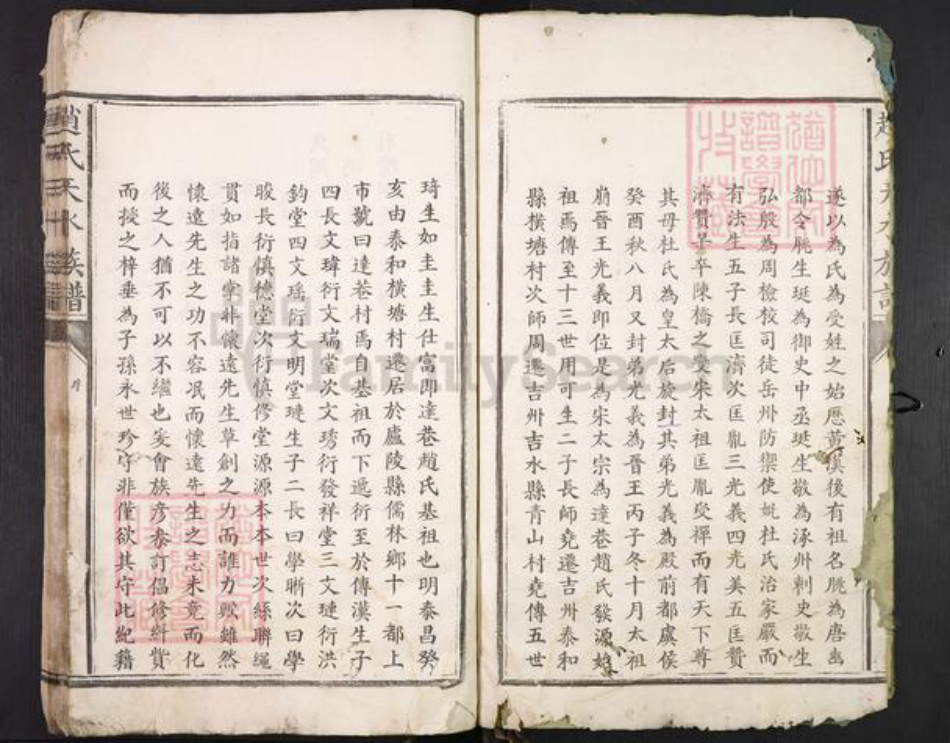 遂以為氏為受姓之始歷黃漢後有祖名脁為唐幽
都令脁生珽為御史中丞珽生敬為涿州刺史敬生
弘殷為周檢校司徒岳州防禦使妣杜氏治家嚴而
有法生五子長匡濟次匡胤三光義四光美五匡贊
濟贊早卒陳橋之變宋太祖匡胤受禪而有天下尊
其母杜氏為皇太后旋封其弟光義為殿前都虞侯
癸酉秋八月又封弟光義為晉王丙子冬十月太祖
崩晉王光義即位是為宋太宗為達巷趙氏發源始
祖焉傳至十三世用可生二子長師堯遷吉州泰和
縣橫塘村次師周遷吉州吉水縣青山村堯傳五世
琦生如圭圭生仕富即達巷趙氏基祖也明泰昌癸
亥由泰和橫塘村遷居於廬陵縣儒林鄉十一都上
市號曰達巷村焉自基祖而下遞衍至於傳漢生子
四長文瑋衍文瑞堂次文琇衍發祥堂三文璉衍洪
鈞堂四文瑤衍文明堂璉生子二長曰學晰次曰學
晙長衍慎德堂次衍慎修堂源源本本世次絲聯繩
貫如指諸掌非懷遠先生草創之力而誰力歟雖然
懷遠先生之功不容泯而懷遠先生之志未竟而化
後之人猶不可以不繼也爰會族彥泰訂倡修糾貲
而授之梓垂為子孫永世珍守非僅欲其守此紀籍
趙氏天水族譜
FamilySearch